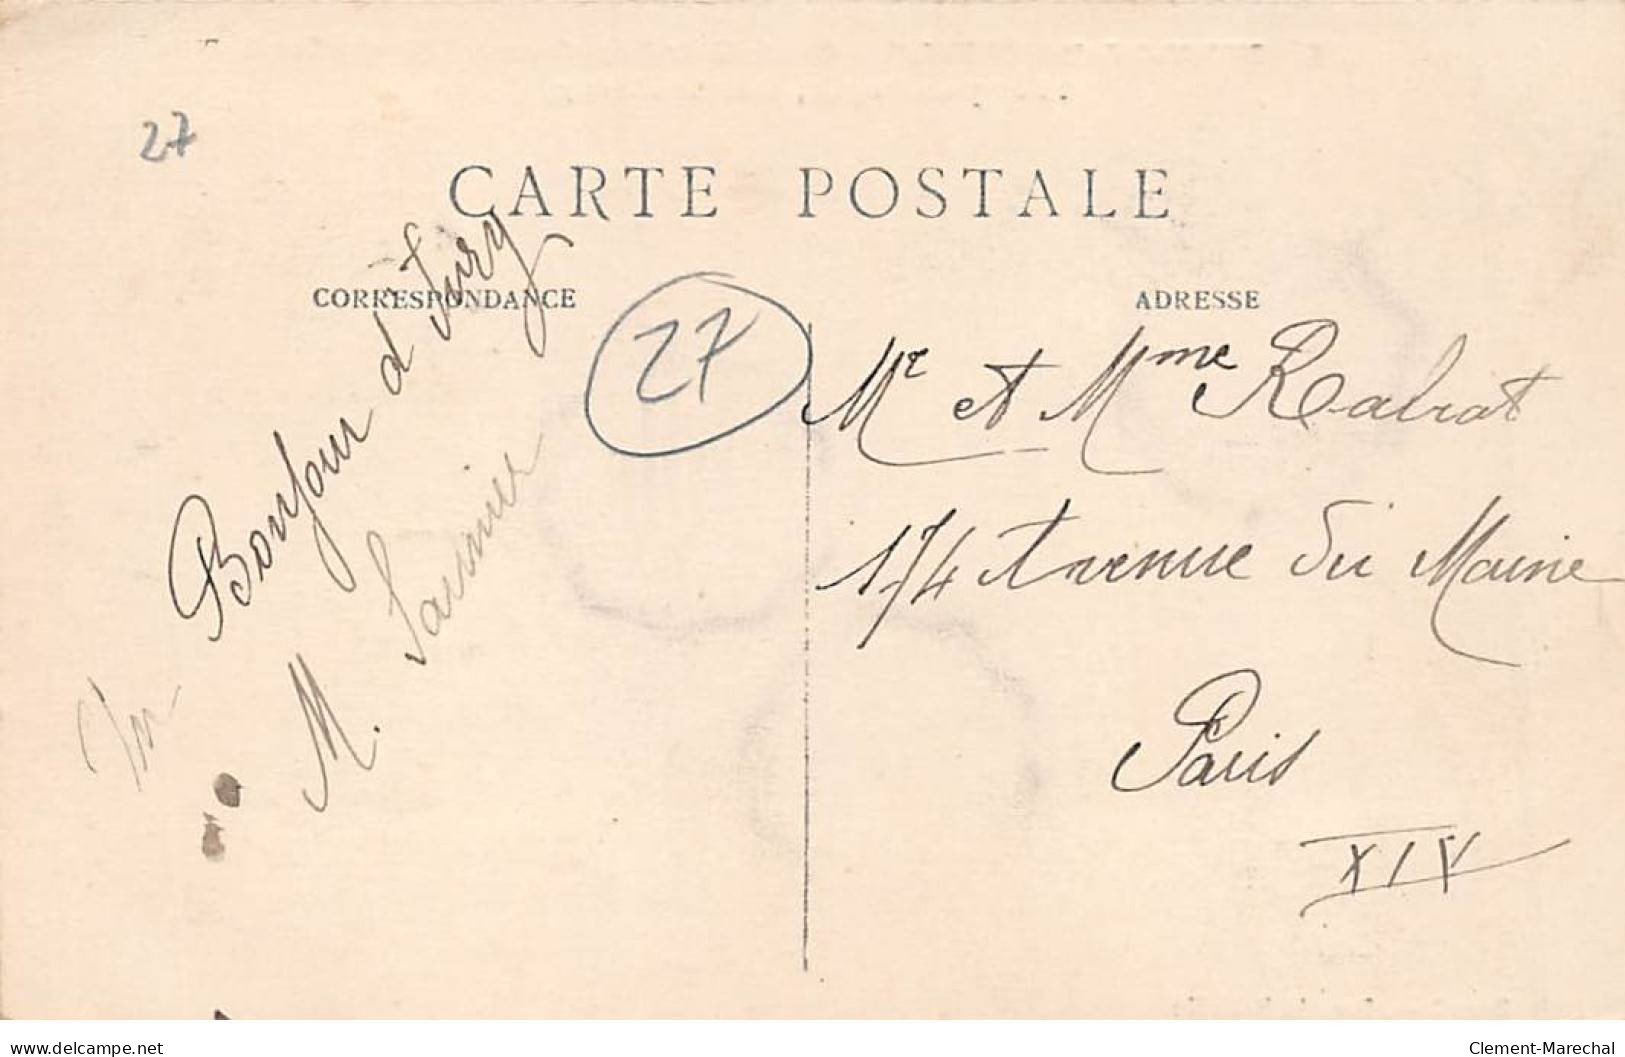 27
CARTE POSTALE
CORRESPONDANCE
ADRESSE
27
Bonjour d'Ivry
M.
Mr et Mme Rabat
174 Avenue du Maine
Paris
XIV
delcampe.net
Clement-Marechal